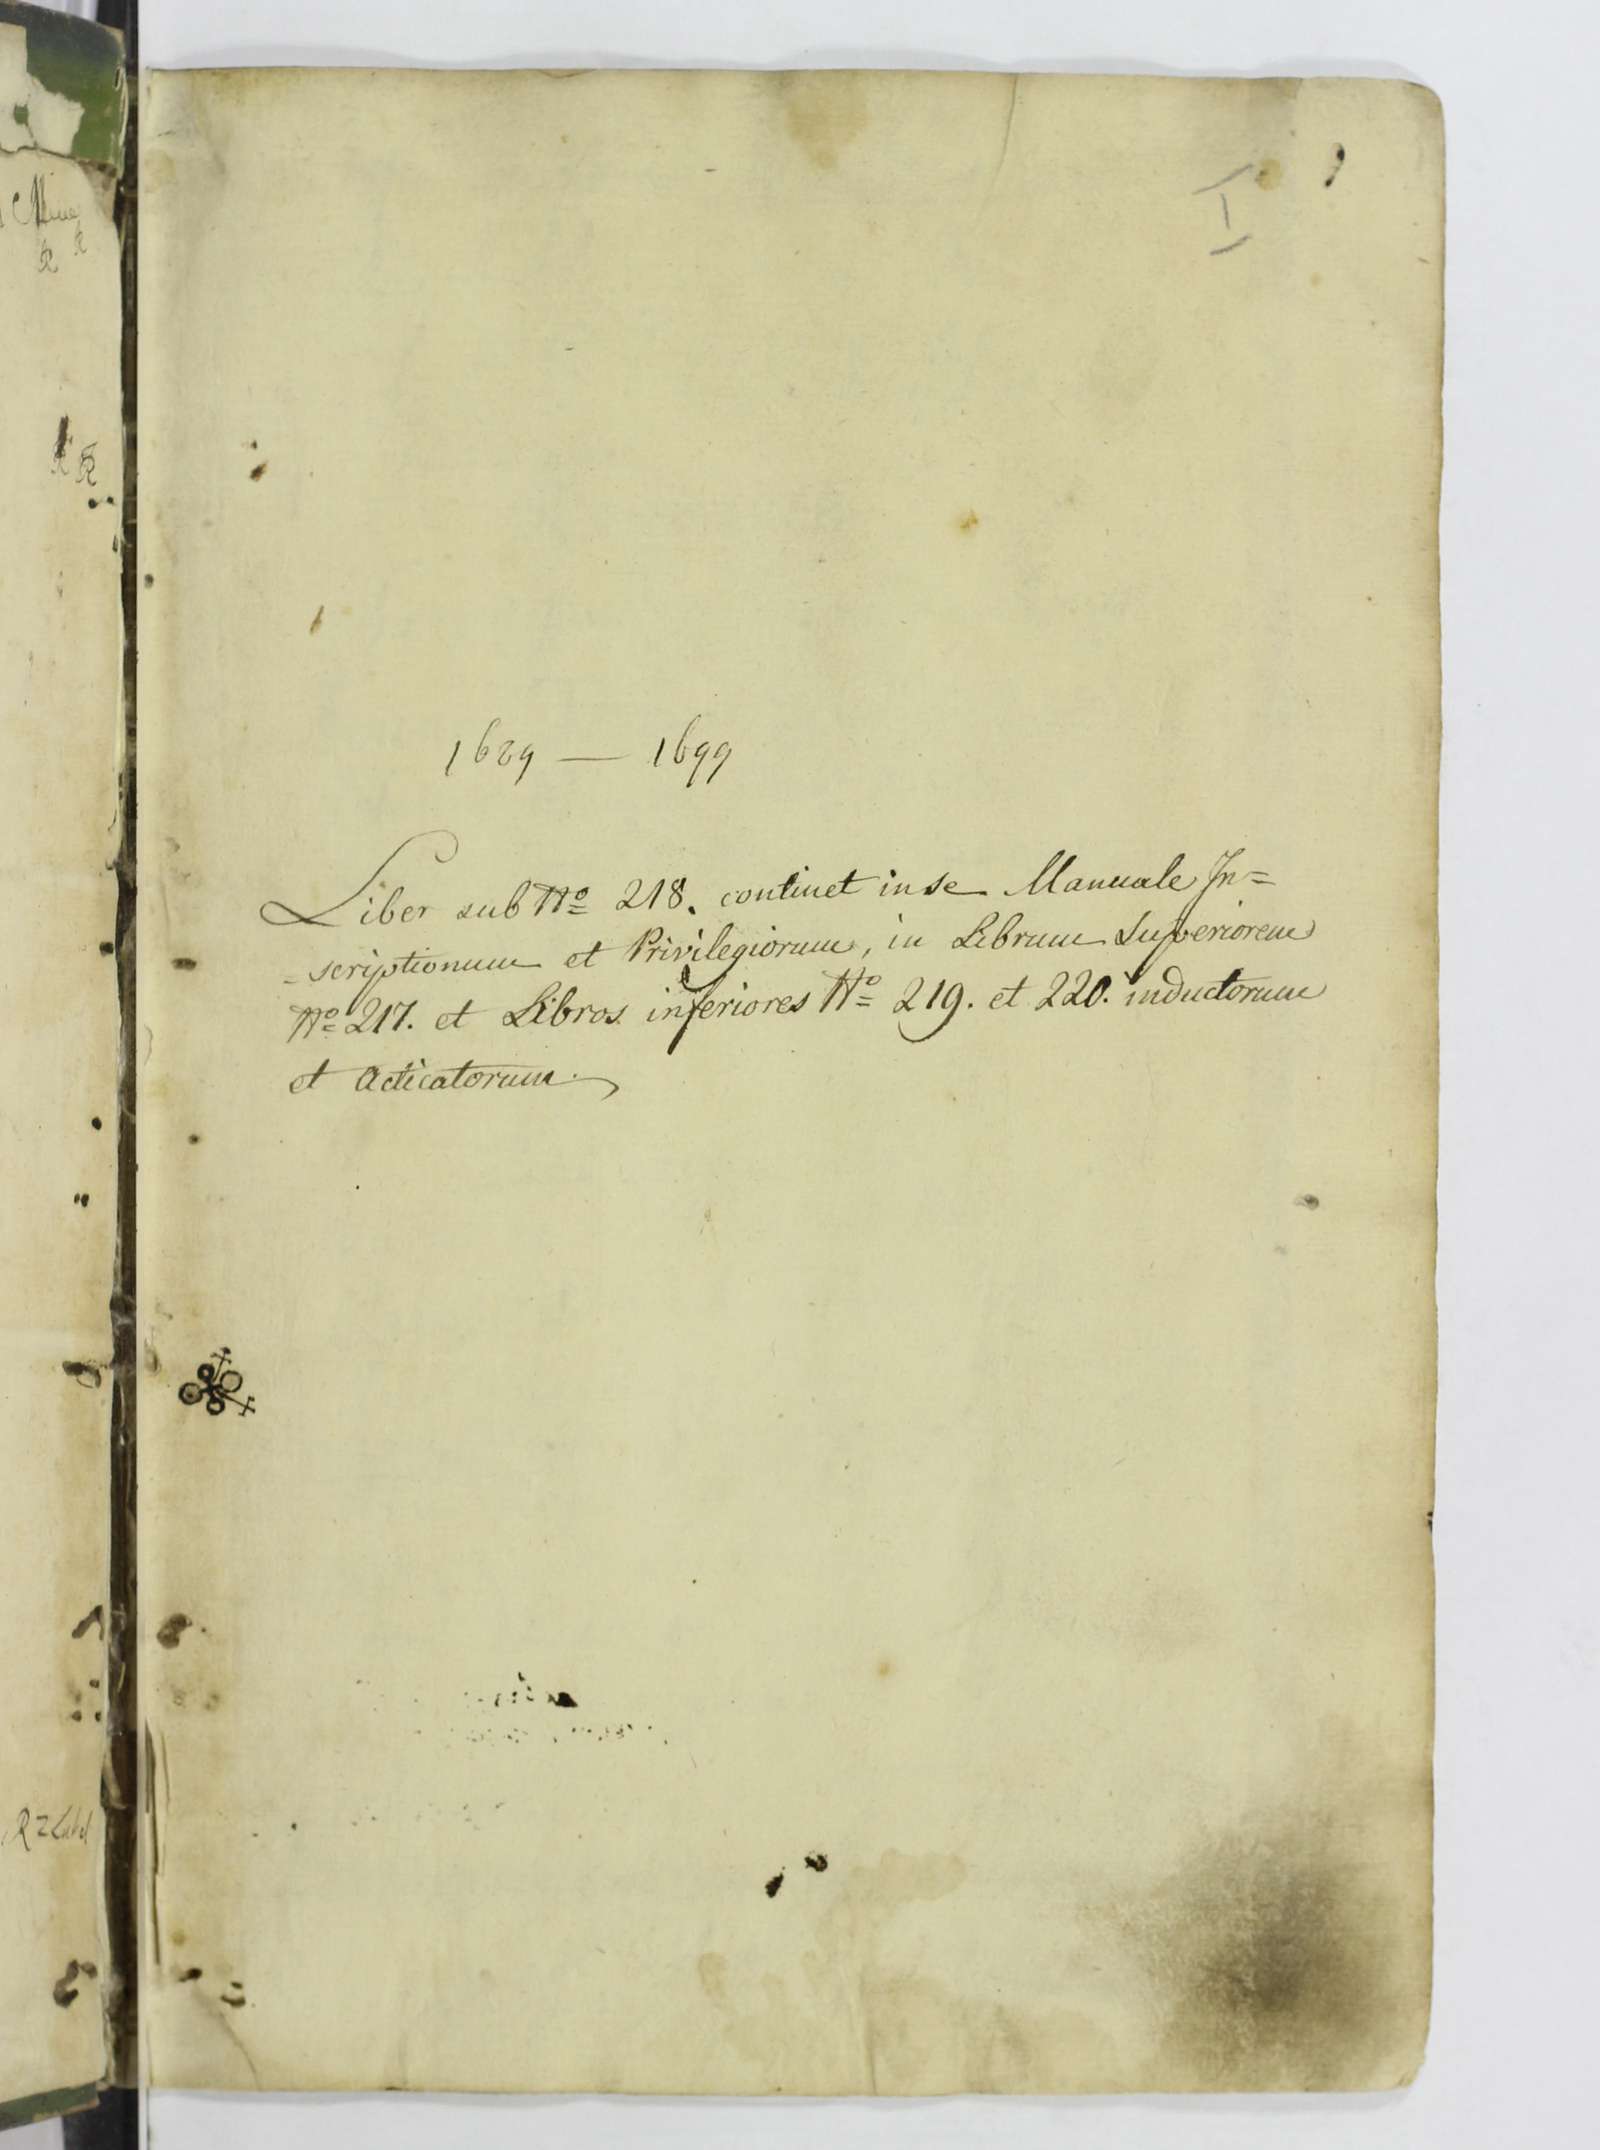 I
1689 — 1699
Liber sub Nº 218. continet in se Manuale In=
-scriptionum et Privilegiorum, in Librum Superiorem
Nº 217. et Libros inferiores Nº 219. et 220. inductorum
et Acticatorum.